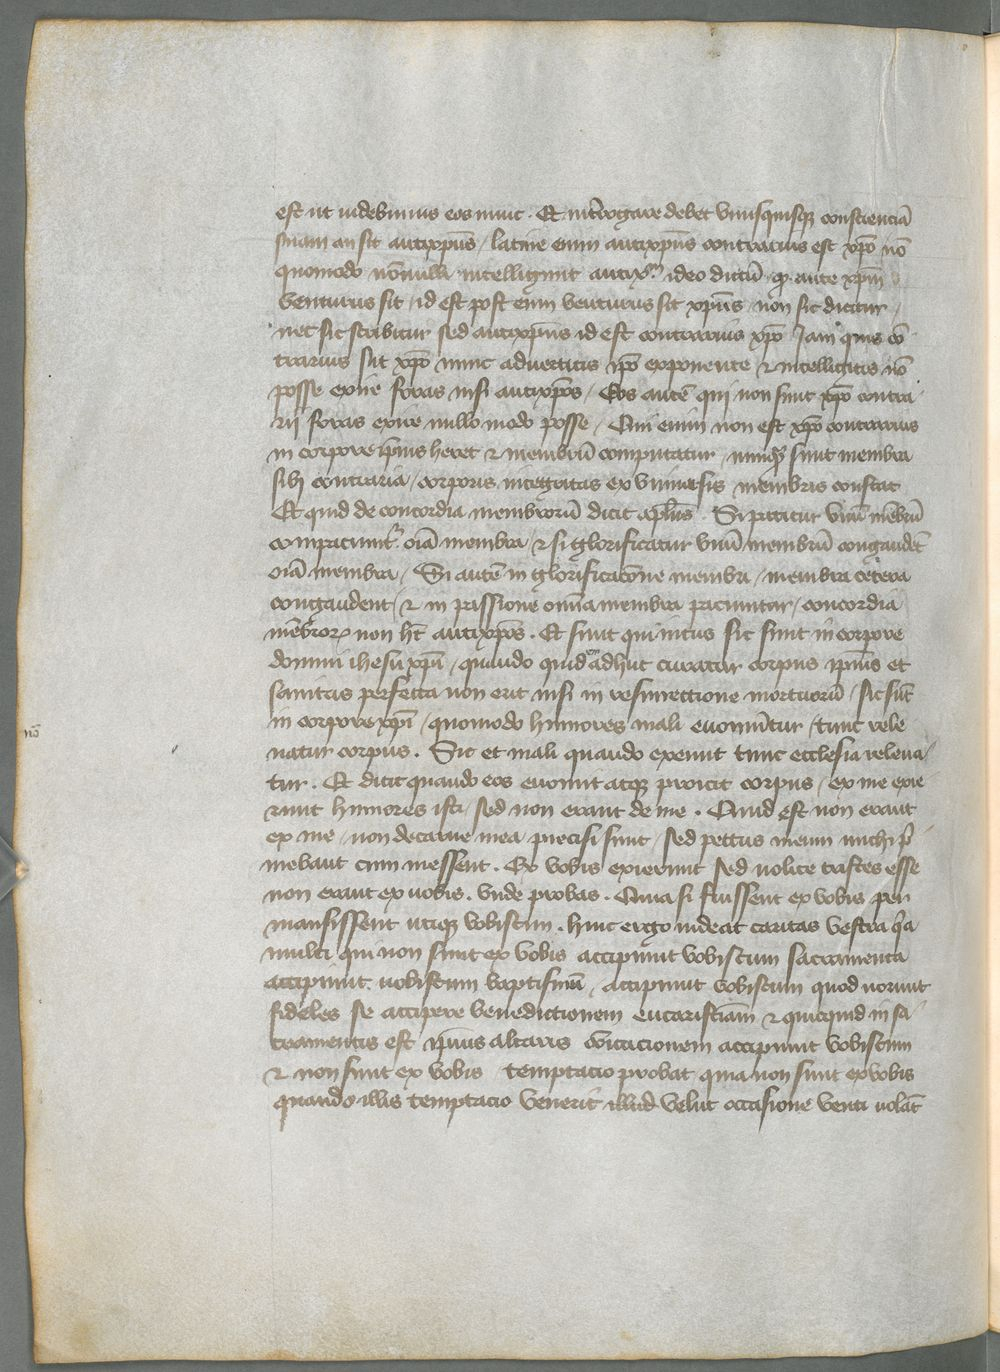 est ut uidebimus eos nunc . Et int̄rogare debet vnusquisqꝫ conscienciā
suam an sit antixp̄us / latine enim antixp̄us contrarius est xp̄o nō
quomodo nōnulli intelligunt antix̄m ideo dictū ꝙ ante xp̄m
venturus sit / id est post eum venturus sit xp̄us non sic dicitur /
nec sic scribitur sed antixp̄us id est contrarius xp̄o Jam quis cō
trarius sit xp̄o nunc aduertitis ip̄o exponente ⁊ intelligitis nō
posse exire foras nisi antixp̄os / Eos autē qui non sunt xp̄o contra
rij foras exire nullo modo posse / Qui enim non est xp̄o contrarius
in corpore ipsius heret ⁊ membrū computatur / nunqꝫ sunt membra
sibi contraria / corporis integritas ex vniuersis membris constat
Et quid de concordia membrorū dicit ap̄lus . Si patitur vnū mēbrū
compaciunt᷑ oīa membra / ⁊ si glorificatur vnū membrū congaudēt
oīa membra / Si autē in glorificacōne membri / membra cetera
congaudent / ⁊ in passione omnia membra paciuntur / concordia
mēbroꝝ non hēt antixp̄os . Et sunt qui intus sic sunt in corpore
domini ihesu xp̄i / quando quidem adhuc curatur corpus ip̄ius et
sanitas perfecta non erit nisi in resurrectione mortuorū / sic sūt
in corpore xp̄i / quomodo humores mali euomūtur / tunc rele
nō
uatur corpus . Sic et mali quando exeunt tunc ecclesia releua
tur . Et dicit quando eos euomit atqꝫ proicit corpus / ex me exie
runt humores isti / sed non erant de me . Quid est non erant
ex me / non de carne mea precisi sunt / sed pectus meum michi p̄
mebant cum inessent . Ex vobis exierunt sed nolite tristes esse
non erant ex uobis . vnde probas . Quia si fuissent ex vobis per
mansissent utiqꝫ vobiscum . hinc ergo uideat caritas vestra q̄a
multi qui non sunt ex vobis accipiunt vobiscum sacramenta
accipiunt uobiscum baptismū / accipiunt vobiscum quod norunt
fideles se accipere benedictionem eucaristiam ⁊ quicquid in sa
cramentis est ip̄ius altaris cōicacionem accipiunt vobiscum
⁊ non sunt ex vobis temptacio probat quia non sunt ex vobis
quando illis temptacio venerit illud velut occasione venti uolāt